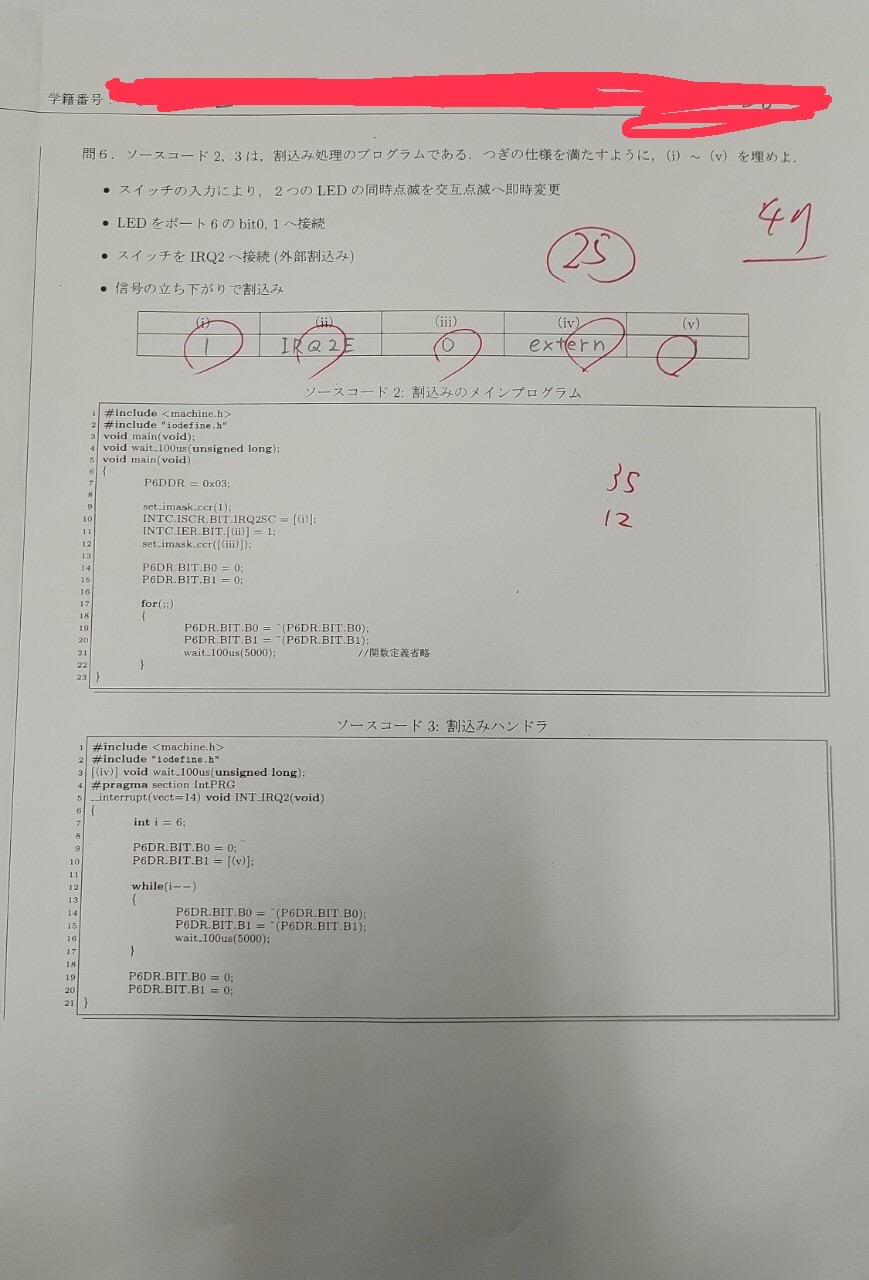 学籍番号：
問６．ソースコード２，３は，割込み処理のプログラムである．つぎの仕様を満たすように，(i) ～ (v) を埋めよ．
• スイッチの入力により，２つの LED の同時点滅を交互点滅へ即時変更
• LED をポート 6 の bit0, 1 へ接続
• スイッチを IRQ2 へ接続 (外部割込み)
• 信号の立ち下がりで割込み
25
(i) (ii) (iii) (iv) (v)
1 IRQ2E 0 extern 1
ソースコード 2: 割込みのメインプログラム
1 #include <machine.h>
2 #include "iodefine.h"
3 void main(void);
4 void wait_100us(unsigned long);
5 void main(void)
6 {
7 P6DDR = 0x03;
8
9 set_imask_ccr(1);
10 INTC.ISCR.BIT.IRQ2SC = [(i)];
11 INTC.IER.BIT.[(ii)] = 1;
12 set_imask_ccr([(iii)]);
13
14 P6DR.BIT.B0 = 0;
15 P6DR.BIT.B1 = 0;
16
17 for(;;)
18 {
19 P6DR.BIT.B0 = ~(P6DR.BIT.B0);
20 P6DR.BIT.B1 = ~(P6DR.BIT.B1);
21 wait_100us(5000); //関数定義省略
22 }
23 }
35
12
ソースコード 3: 割込みハンドラ
1 #include <machine.h>
2 #include "iodefine.h"
3 [(iv)] void wait_100us(unsigned long);
4 #pragma section IntPRG
5 __interrupt(vect=14) void INT_IRQ2(void)
6 {
7 int i = 6;
8
9 P6DR.BIT.B0 = 0;
10 P6DR.BIT.B1 = [(v)];
11
12 while(i--)
13 {
14 P6DR.BIT.B0 = ~(P6DR.BIT.B0);
15 P6DR.BIT.B1 = ~(P6DR.BIT.B1);
16 wait_100us(5000);
17 }
18
19 P6DR.BIT.B0 = 0;
20 P6DR.BIT.B1 = 0;
21 }